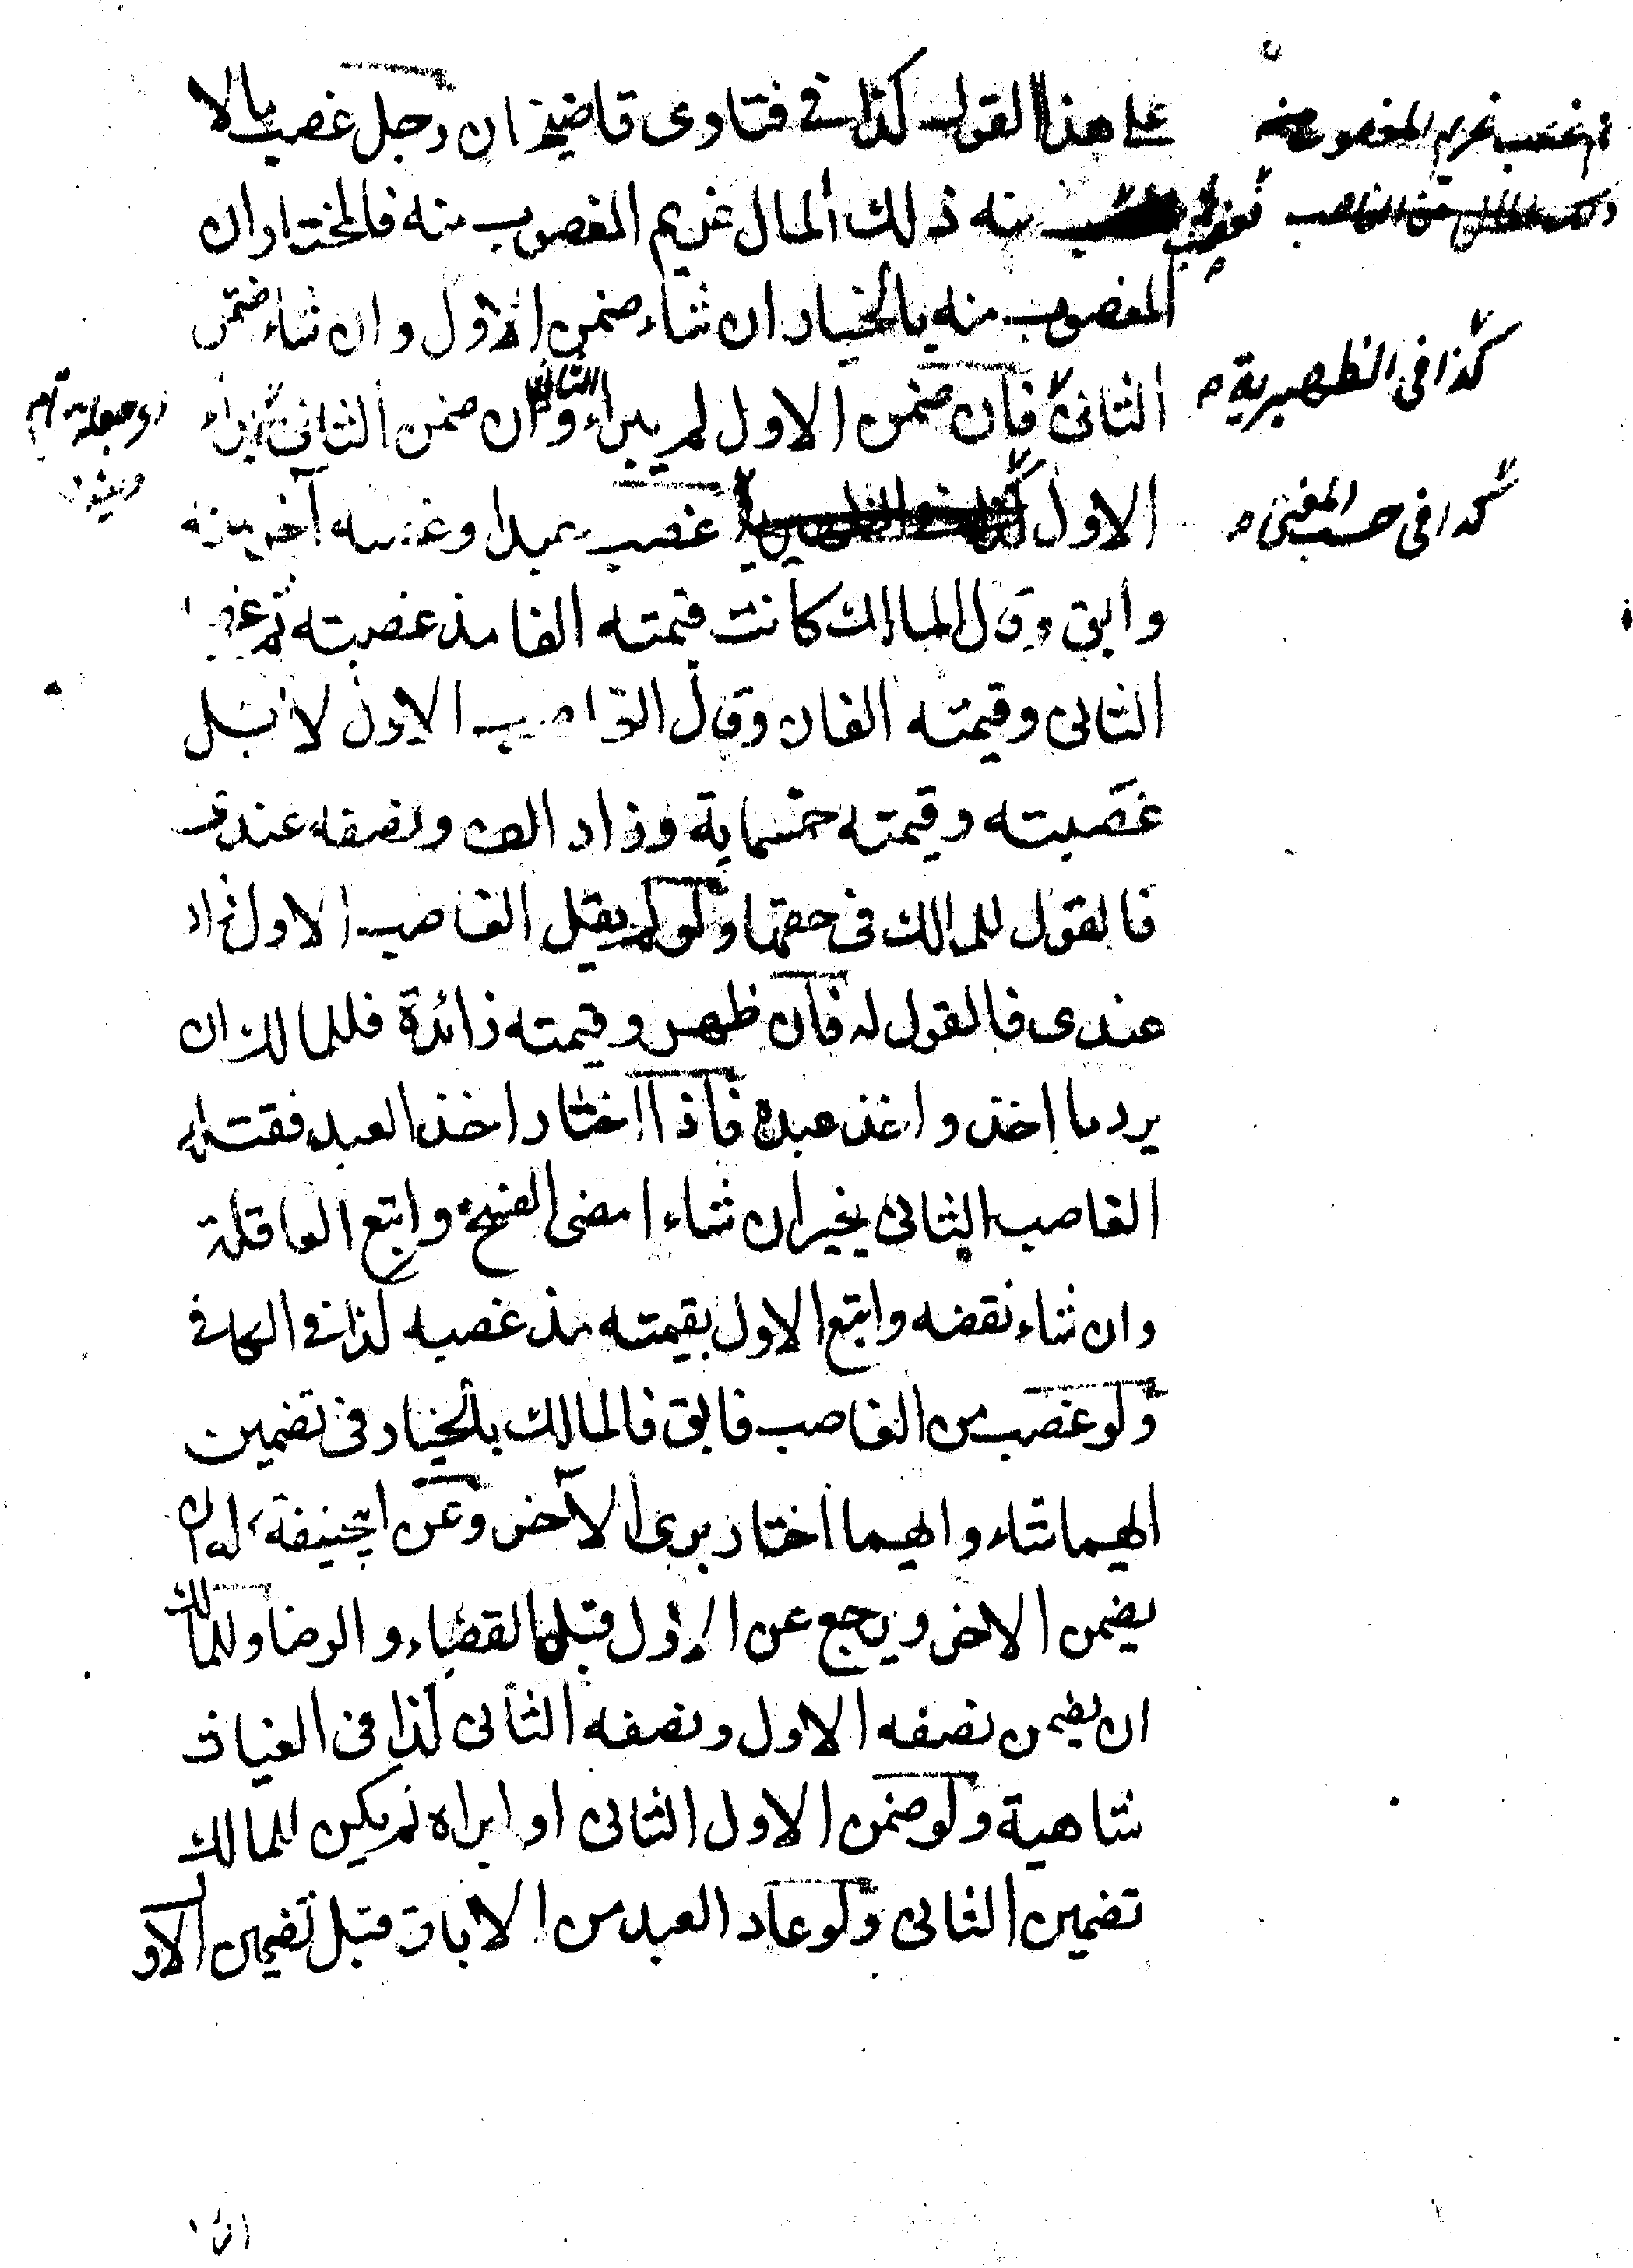 على هذا القول كذا في فتاوى قاضيخان رجل غصب مالا
ثم غصب غريم المغصوب منه
منه ذلك المال غريم المغصوب منه فالمختار ان
المغصوب منه بالخيار ان شاء ضمن الاول وان شاء ضمن
الثانى فان ضمن الاول لم يبراء الثانى وان ضمن الثانى يبراء
كذا فى الظهيرية
الاول غصب عبدا وغصبه آخر منه
كذا فى
وابق وقال المالك كانت قيمته الفا مذ غصبته ثم غصبه
الثانى وقيمته الفان وقال الغاصب الاول لا بل
غصبته وقيمته خمسماية وزاد الف ونصفه عندى
فالقول للمالك فى حقهما ولو لم يقل الغاصب الاول زاد
عندى فالقول له فان ظهر وقيمته زائدة فللمالك ان
يرد ما اخذ واخذ عبده فاذا اختار اخذ العبد فقتله
الغاصب الثانى يخير ان شاء امضى الفسخ واتبع العاقلة
وان شاء نقضه واتبع الاول بقيمته مذ غصبه كذا في الكافي
ولو غصب من الغاصب فابق فالمالك بالخيار فى تضمين
ايهما شاء وايهما اختار برى الآخر وعن ابيحنيفة له ان
يضمن الاخر ويرجع عن الاول قبل القضاء والرضا وللمالك
ان يضمن نصفه الاول ونصفه الثانى كذا فى الغياث
شاهية ولو ضمن الاول الثانى او ابراه لم يكن للمالك
تضمين الثانى ولو عاد العبد من الاباق قبل تضمين الاول